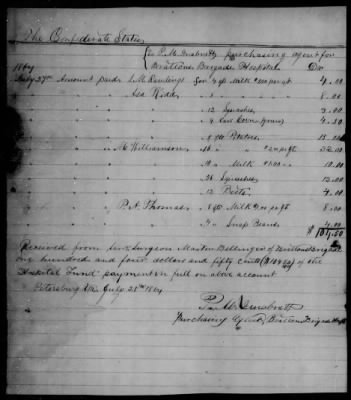 The Confederate States
To P. M. purchasing agent for
Brattons Brigade Hospital Dr
1864
July 27th Amount paid L. M. Rawlings for 2 gts Milk @ 2.00 pr qt 4.00
" " Asa 8.00
" " " 12 Squashes 2.00
" " " 4 Ears Corn (green) 4.50
" " " 8 qts Potatoes
" " M. Williamson 16 " " @ 2.00 pr qt
" " " 10 " Milk 10.00
" " " 24 Squashes 12.00
" " " 12 Beets 4.00
" " P. A. Thomas 8 qts Milk @ 1.00 pr qt 8.00
" " " " Snap Beans 4.00
$ 104.50
Received from Senr Surgeon Martin Bellinger of Brattons Brigade
one hundred and four dollars and fifty Cents ($104.50) of the
Hospital Fund payment in full on above account
Petersburg Va July 28th 1864
P. M.
Purchasing Agent, Brattons Brigade Hospt